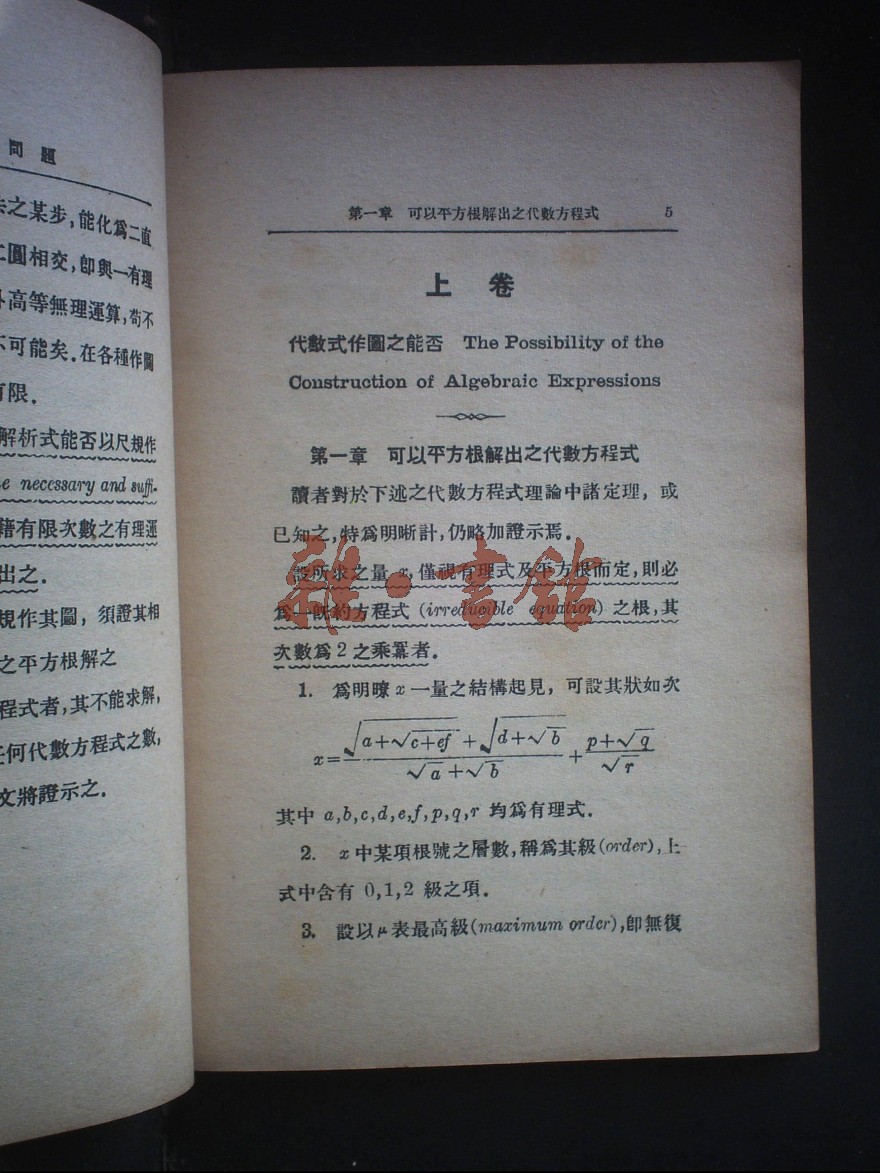 問題
之某步,能化爲二直
二圓相交,卽與一有理
高等無理運算,苟不
不可能矣.在各種作圖
有限.
解析式能否以尺規作
necessary and suffi-
藉有限次數之有理運
出之.
規作其圖,須證其相
之平方根解之
程式者,其不能求解,
任何代數方程式之數,
文將證示之.
第一章 可以平方根解出之代數方程式 5
上卷
代數式作圖之能否 The Possibility of the
Construction of Algebraic Expressions
第一章 可以平方根解出之代數方程式
讀者對於下述之代數方程式理論中諸定理,或
已知之,特爲明晰計,仍略加證示焉.
設所求之量 x,僅視有理式及平方根而定,則必
爲一旣約方程式 (irreducible equation) 之根,其
次數爲 2 之乘羃者.
1. 爲明瞭 x 一量之結構起見,可設其狀如次
x = (√(a+√(c+ef)) + √(d+√b)) / (√a + √b) + (p+√q) / √r
其中 a,b,c,d,e,f,p,q,r 均爲有理式.
2. x 中某項根號之層數,稱爲其級(order),上
式中含有 0,1,2 級之項.
3. 設以μ表最高級(maximum order),卽無復
雜·書館